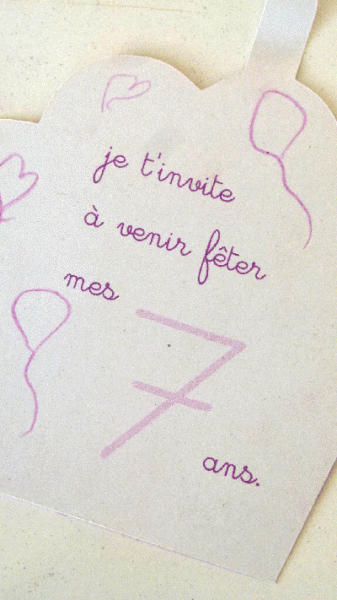 je t'invite
à venir fêter
mes 7
ans.